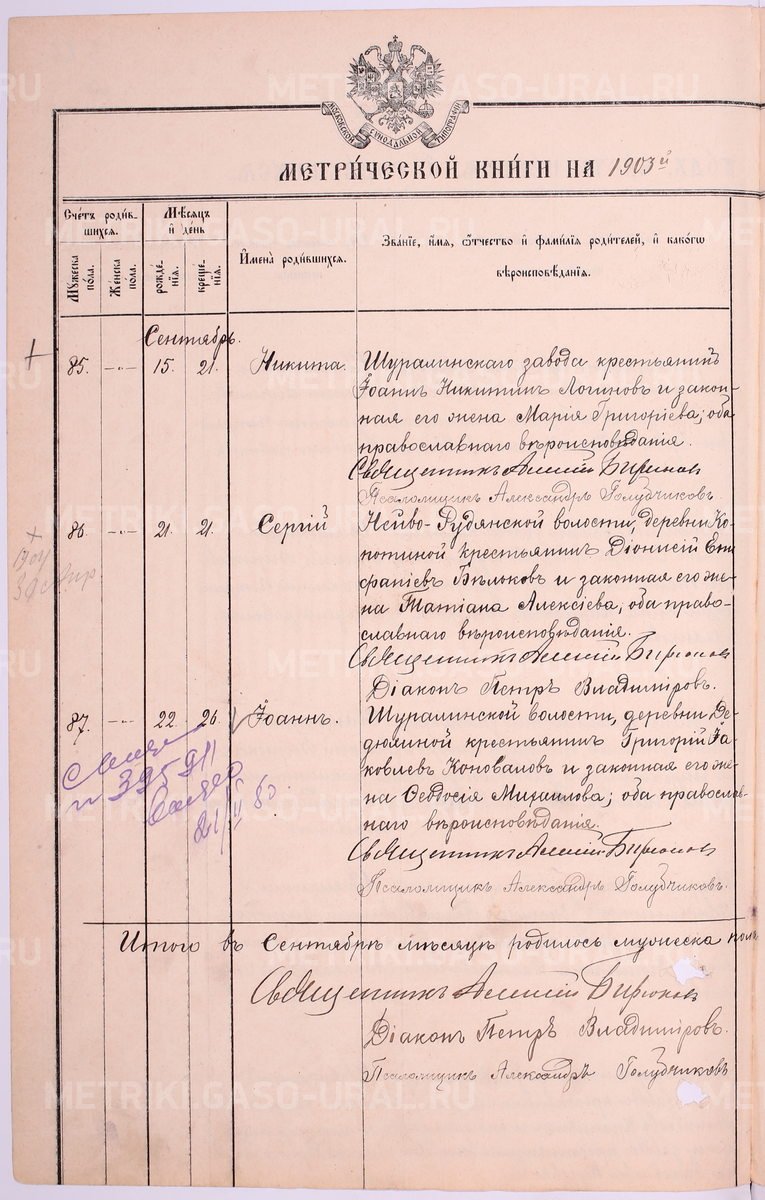 МОСКОВСКОЙ СѴНОДАЛЬНОЙ ТИПОГРАФІИ
МЕТРИ́ЧЕСКОЙ КНИ́ГИ НА 1903й
Сче́тъ роди́в-
шихся.
Му́жеска по́ла.
Же́нска по́ла.
Мѣ́сяцъ
и҆ де́нь
рожде́-
нїѧ.
креще́-
нїѧ.
И҆мена̀ роди́вшихся.
Зва́нїе, и҆́мя, ѻ҆́тчество и҆ фами́лїя роди́телей, и҆ како́гѡ
вѣроисповѣ́данїя.
Сентябрь.
85. -"- 15. 21. Никита. Шуралинскаго завода крестьянинъ
Іоаннъ Никитинъ Логиновъ и закон-
ная его жена Марія Григоріева; оба
православнаго вѣроисповѣданія.
Священникъ Алексій Бирюковъ
Псаломщикъ Александръ Голубчиковъ.
86. -"- 21. 21. Сергій Нейво-Рудянской волости, деревни Ко-
потиной крестьянинъ Діонисій Епи-
фаніевъ Бѣльковъ и законная его же-
на Татіана Алексіева, оба право-
славнаго вѣроисповѣданія.
Священникъ Алексій Бирюковъ
Діаконъ Петръ Владиміровъ.
1904
87. -"- 22. 26. Іоаннъ. Шуралинской волости, деревни Де-
дюлиной крестьянинъ Григорій Іа-
ковлевъ Коноваловъ и законная его же-
на Ѳеодосія Михаилова; оба православ-
наго вѣроисповѣданія.
Священникъ Алексій Бирюковъ
Псаломщикъ Александръ Голубчиковъ.
395911
21/II 50
Итого въ Сентябрѣ мѣсяцѣ родилось мужеска пола
Священникъ Алексій Бирюковъ
Діаконъ Петръ Владиміровъ.
Псаломщикъ Александръ Голубчиковъ
METRIKI.GASO-URAL.RU